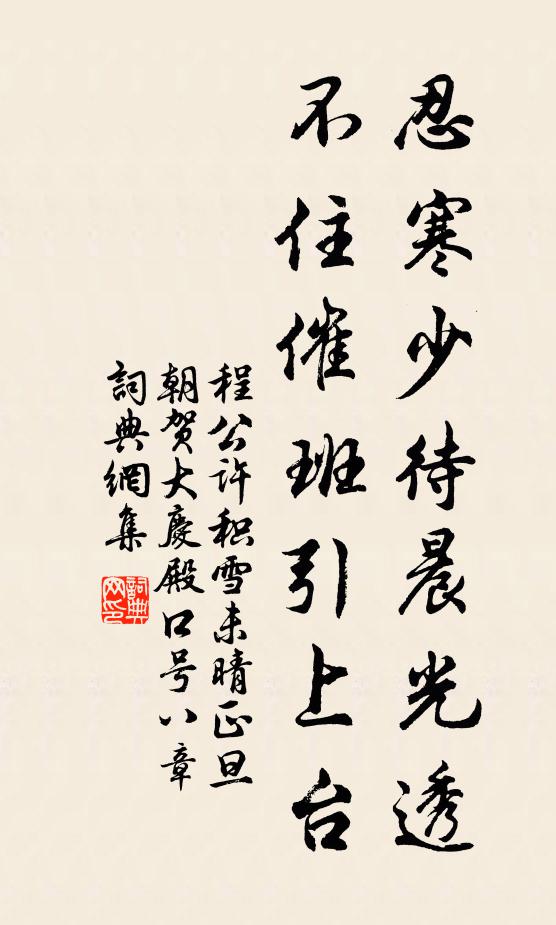 忍寒少待晨光透
不住催班引上台
程公许积雪未晴正旦
朝贺大慶殿口号八章
詞典網集
詞典網印